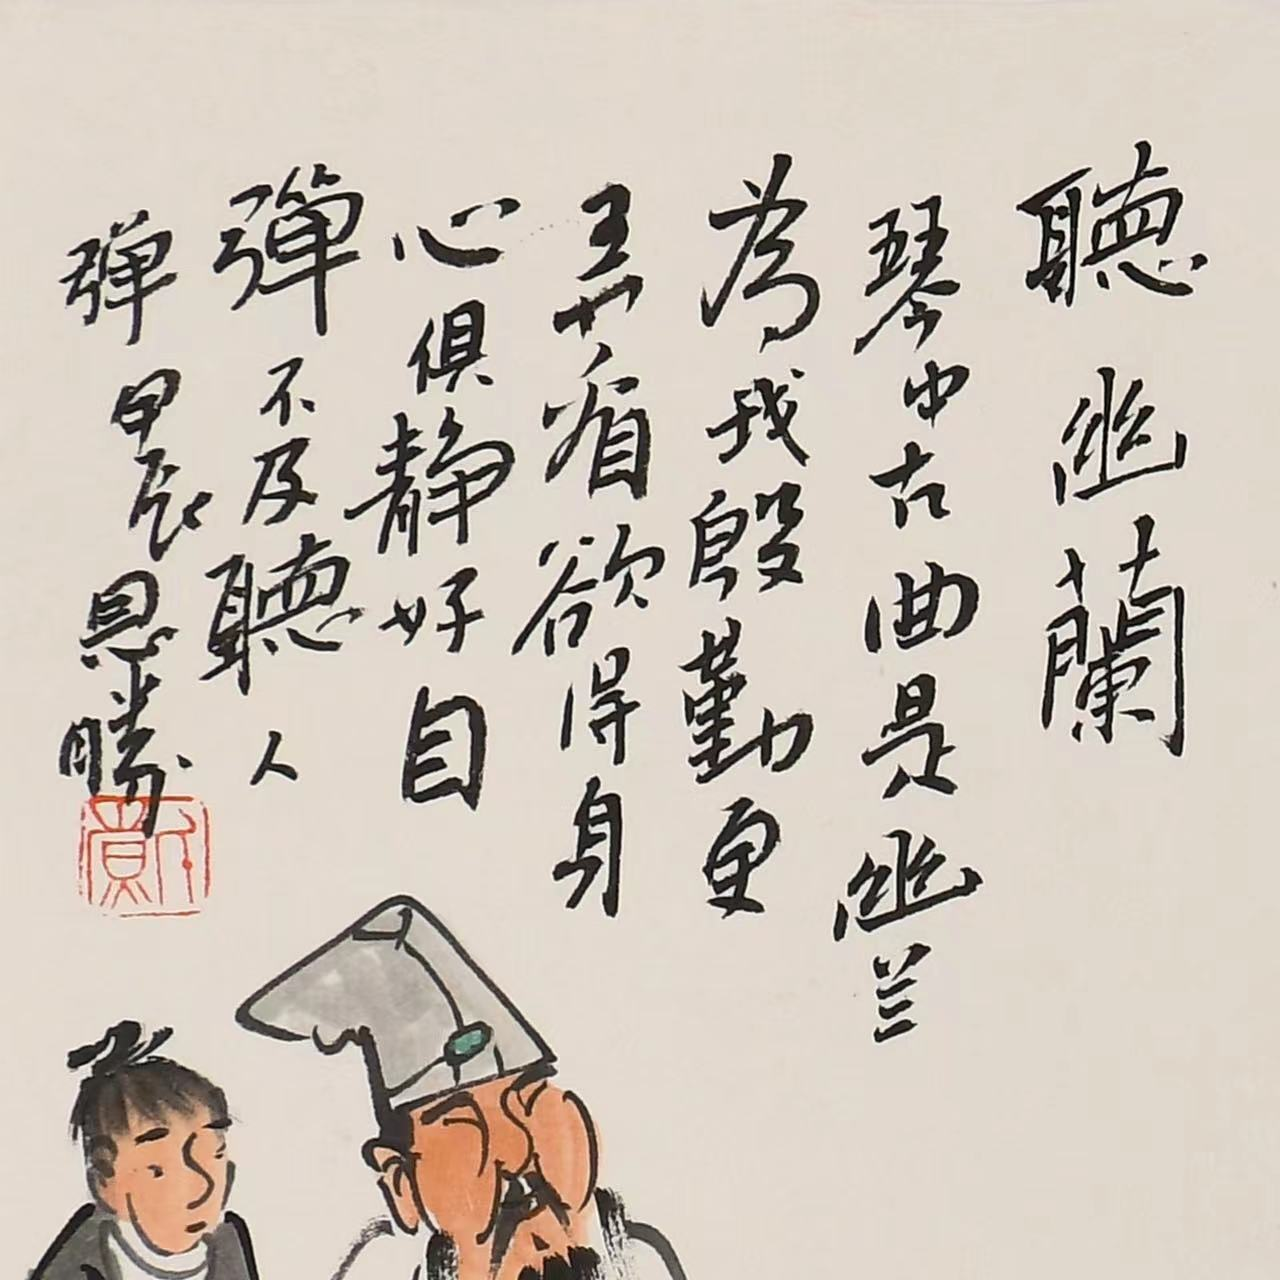 聽幽蘭
琴中古曲是幽兰
為我殷勤更
弄看欲得身
心俱静好自
彈不及聽人
弹甲辰恩勝